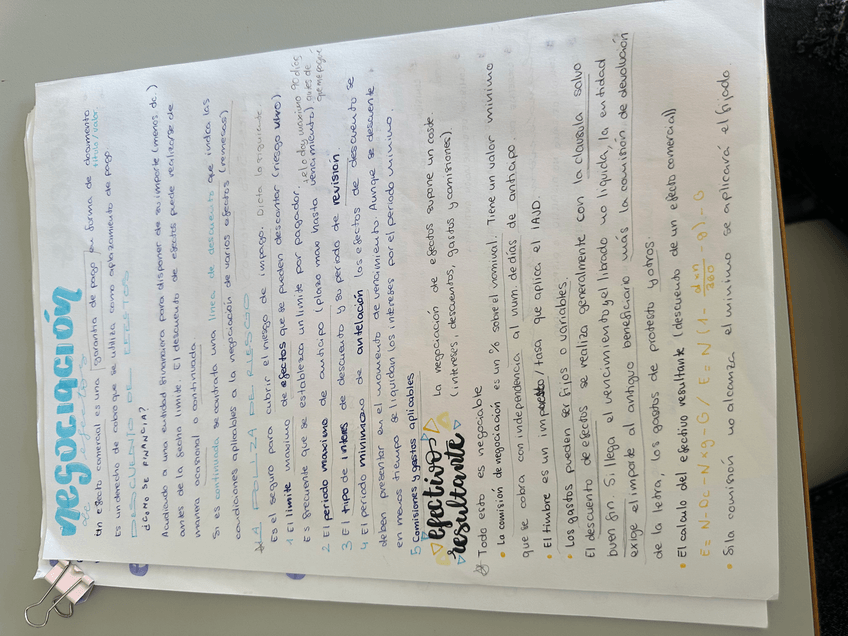 negociación
de efectos
Un efecto comercial es una garantía de pago en forma de documento
título/valor
Es un derecho de cobro que se utiliza como aplazamiento de pago.
DESCUENTO DE EFECTOS
¿CÓMO SE FINANCIA?
Acudiendo a una entidad financiera para disponer de su importe (menos dc.)
antes de la fecha límite. El descuento de efectos puede realizarse de
manera ocasional o continuada
Si es continuada se contrata una línea de descuento que indica las
condiciones aplicables a la negociación de varios efectos (remesas)
LA POLIZA DE RIESGO
Es el seguro para cubrir el riesgo de impago. Dicta lo siguiente:
1 El límite máximo de efectos que se pueden descontar (riesgo vivo)
Es frecuente que se establezca un límite por pagador.
te lo doy maximo 90 días
antes de
que me pague
2 El periodo maximo de anticipo (plazo max hasta vencimiento)
3 El tipo de interes de descuento y su periodo de revisión
4 El periodo minimiono de antelación los efectos de descuento se
deben presentar en el momento de vencimiento. Aunque se descuente
en menos tiempo se liquidan los intereses por el periodo mínimo.
5 Comisiones y gastos aplicables
efectivo
resultante
La negociación de efectos supone un coste
(intereses, descuentos, gastos y comisiones).
Todo esto es negociable
• La comisión de negociación es un % sobre el nominal. Tiene un valor minimo
que se cobra con independencia al num. de días de anticipo
• El timbre es un impuesto/tasa que aplica el IAJD.
• Los gastos pueden ser fijos o variables.
El descuento de efectos se realiza generalmente con la clausula salvo
buen fin. Si llega el vencimiento y el librado no liquida, la entidad
exige el importe al antiguo beneficiario más la comisión de devolución
de la letra, los gastos de protesto y otros.
• El calculo del efectivo resultante (descuento de un efecto comercial)
E = N - Dc - N x g - G / E = N (1 - d x n / 360 - g) - G
• Si la comisión no alcanza el mínimo se aplicará el fijado.